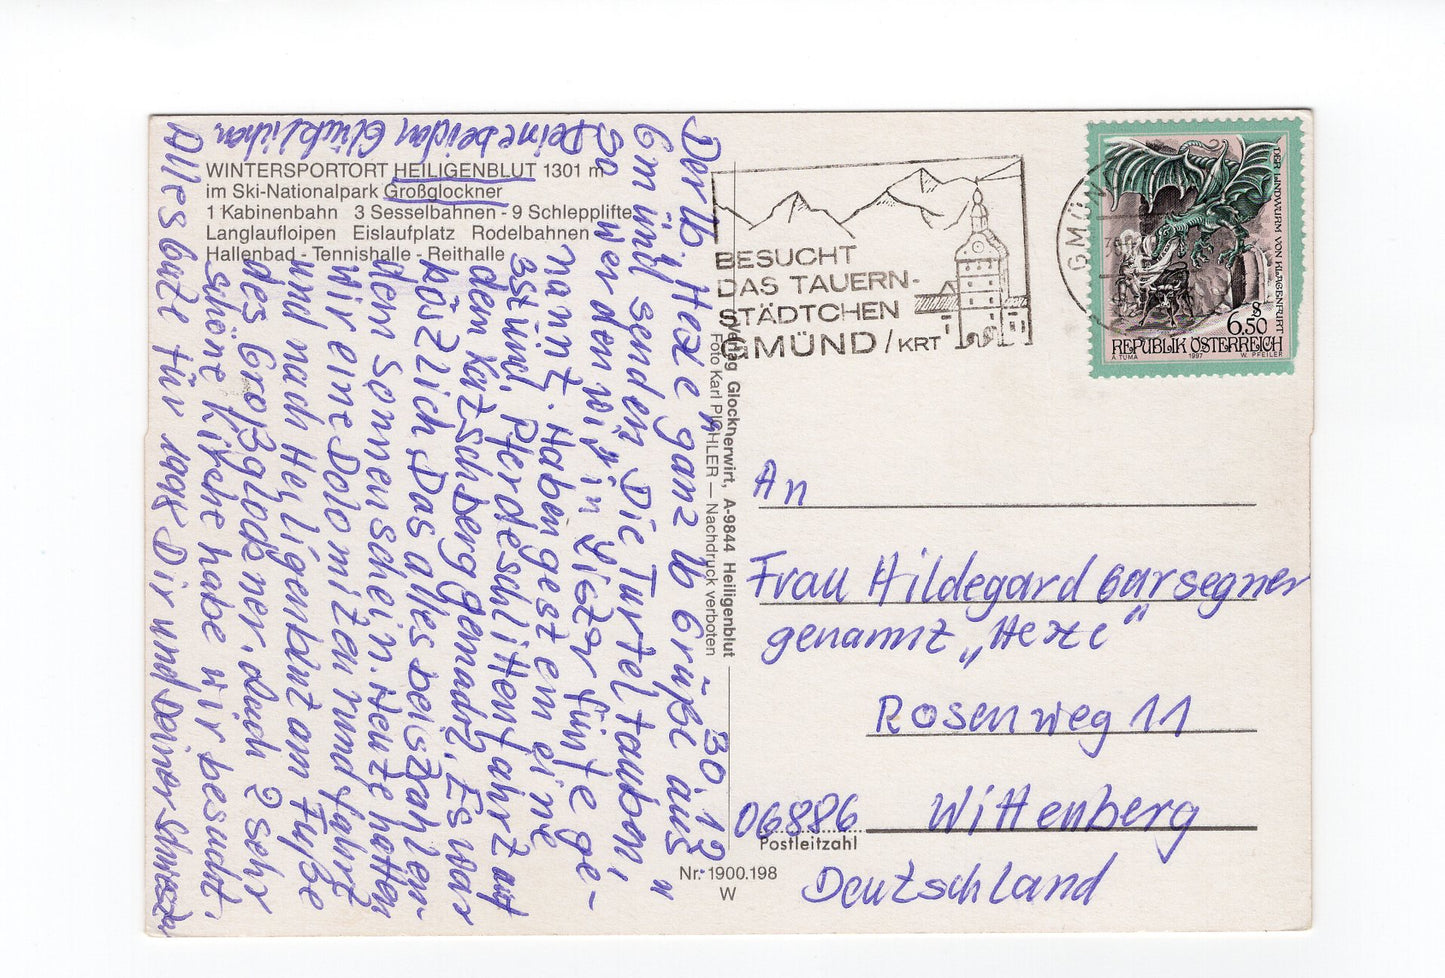 WINTERSPORTORT HEILIGENBLUT 1301 m
im Ski-Nationalpark Großglockner
1 Kabinenbahn 3 Sesselbahnen - 9 Schlepplifte
Langlaufloipen Eislaufplatz Rodelbahnen
Hallenbad - Tennishalle - Reithalle
30.12.
Der lb "Hexe" ganz lb Grüße aus
Gmünd senden "Die Turteltauben",
so werden wir in Lieser fünfe ge-
nannt. Haben gestern eine
Pferdeschlittenfahrt auf
den Katschberg gemacht. Es war
köstlich das alles bei strahlen-
den Sonnenschein. Heute hatten
wir eine Dolomitenrundfahrt
und nach Heiligenblut am Fuße
des Großglockner. Auch 2 sehr
schöne Kirche habe wir besucht.
Alles Gute für 1998 Dir und Deiner Schwester
Deine beiden Glücklichen.
Verlag Glocknerwirt, A-9844 Heiligenblut
Foto Karl PICHLER — Nachdruck verboten
BESUCHT
DAS TAUERN-
STÄDTCHEN
GMÜND/KRT
GMÜN
DER LINDWURM VON KLAGENFURT
S
6.50
REPUBLIK ÖSTERREICH
A. TUMA 1997 W. PFEILER
An
Frau Hildegard Garsegner
genannt „Hexe"
Rosenweg 11
06886 Wittenberg
Postleitzahl
Deutschland
Nr. 1900.198
W